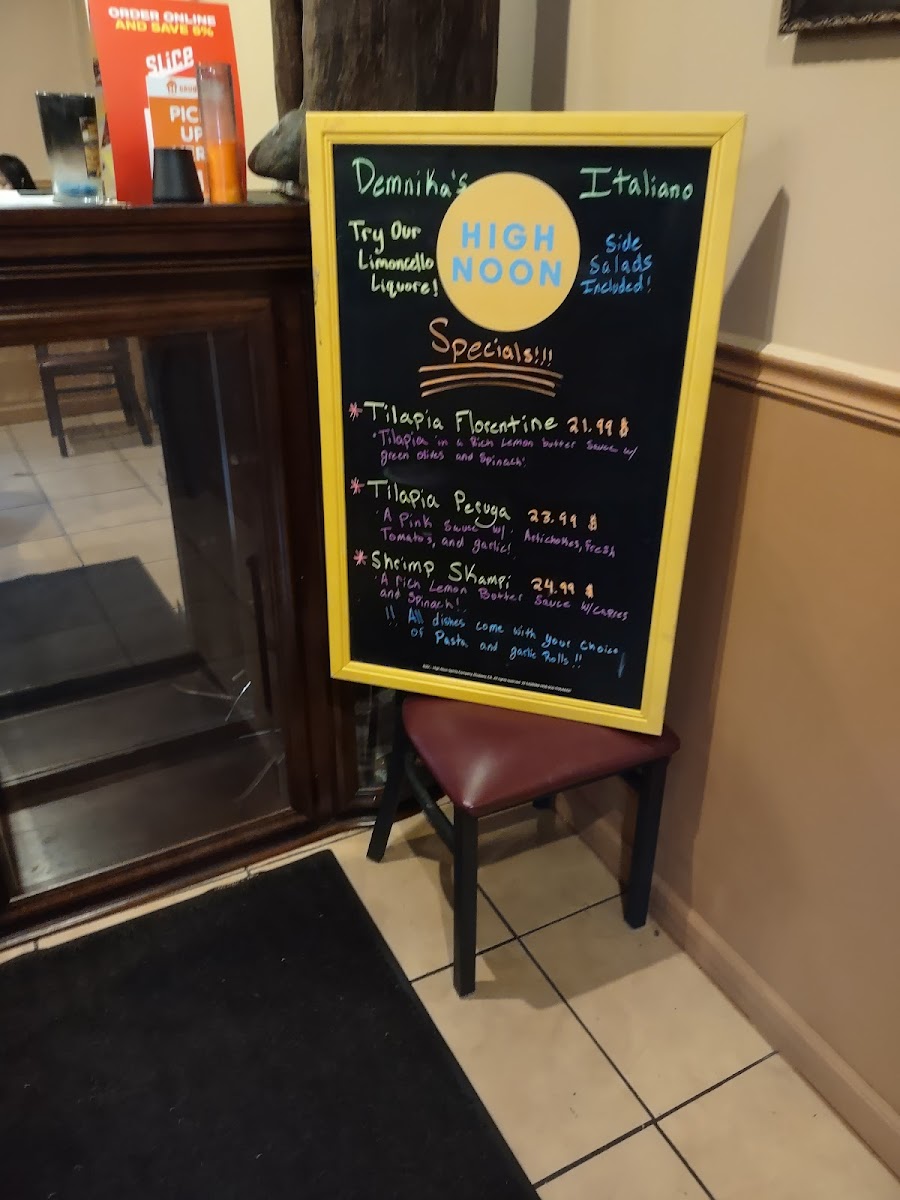 ORDER ONLINE
AND SAVE 5%
slice
PIC
UP
Demnika's Italiano
HIGH
NOON
Try Our
Limoncello
Liquore!
Side
Salads
Included!
Specials!!!
* Tilapia Florentine 21.99 $
"Tilapia in a Rich Lemon butter Sauce w/
green olives and Spinach"
* Tilapia Peruga 23.99 $
"A Pink Sauce w/ Artichokes, Fresh
Tomato's, and garlic!
* Shrimp Skampi 24.99 $
"A Rich Lemon Butter Sauce w/ Capres
and Spinach!
!! All dishes come with your choice
of Pasta and garlic Rolls!!